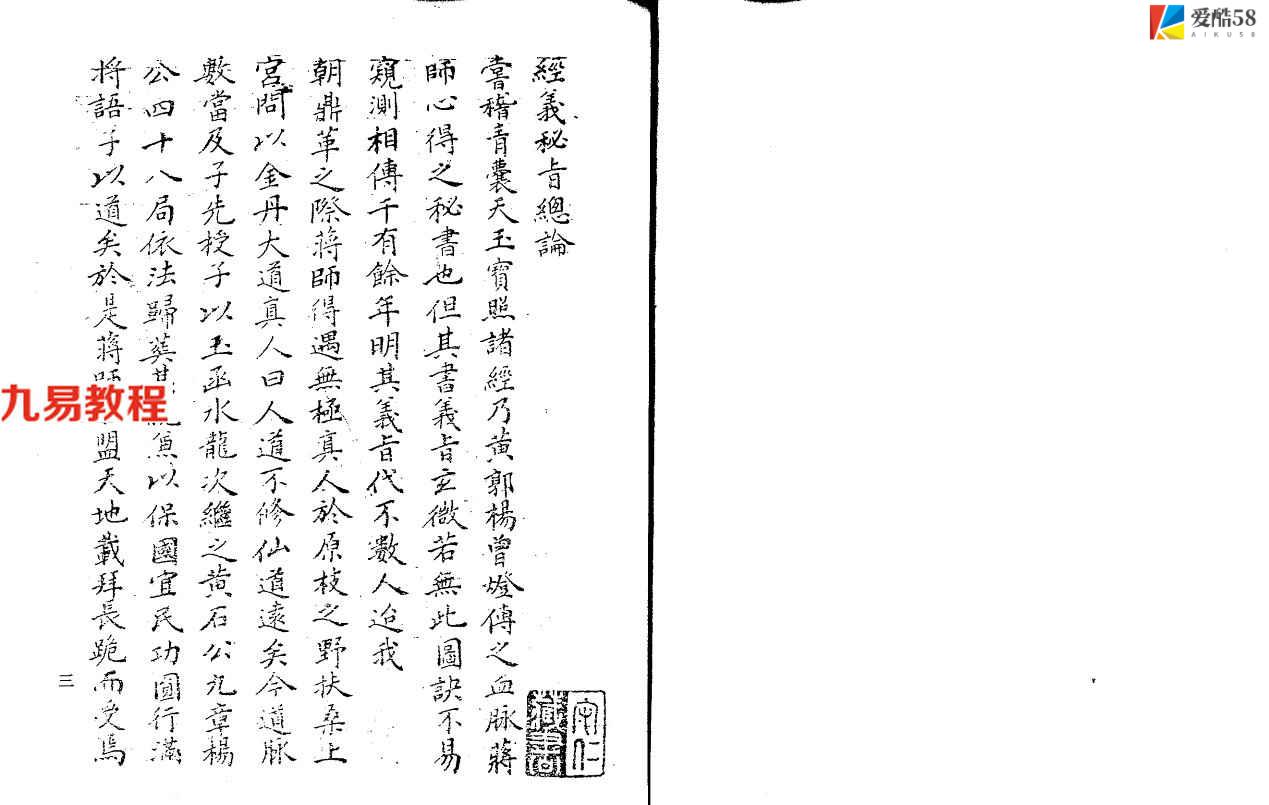 爱酷58
AIKU58
經義秘旨總論
嘗稽青囊天玉寶照諸經乃黄郭楊曾燈傳之血脉蔣
師心得之秘書也但其書義旨玄微若無此圖訣不易
窺測相傳千有餘年明其義旨代不數人迨我
朝鼎革之際蔣師得遇無極真人於原枝之野扶桑上
宮問以金丹大道真人曰人道不修仙道遠矣今道脉
數當及子先授子以玉函水龍次繼之黄石公九章楊
公四十八局依法歸葬其 兼以保國宜民功圓行滿
將語子以道矣於是蔣師 盟天地載拜長跪而受焉
九易教程
三
守仁
藏書